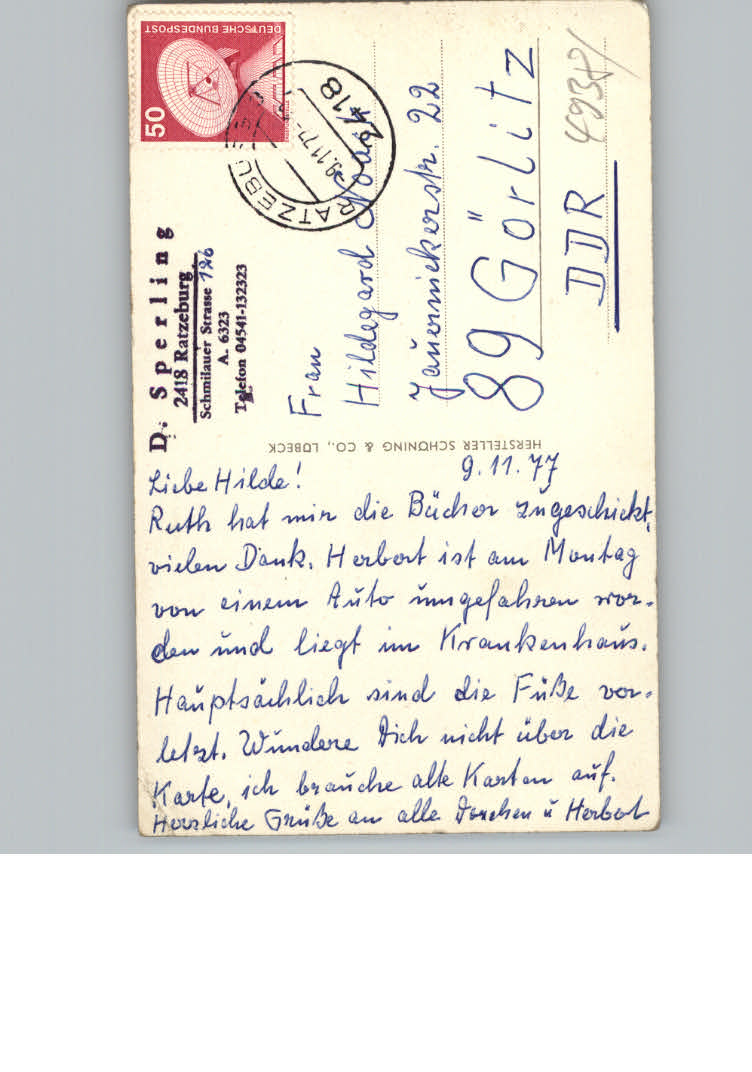 DEUTSCHE BUNDESPOST
50
RATZEBU
2418
-9.11.77
D. Sperling
2418 Ratzeburg
Schmilauer Strasse 126
A. 6323
Telefon 04541-132323
Frau
Hildegard
Jauernickerstr. 22
89 Görlitz
DDR
HERSTELLER SCHÖNING & CO., LÜBECK
9.11.77
Liebe Hilde!
Ruth hat mir die Bücher zugeschickt,
vielen Dank. Herbert ist am Montag
von einem Auto umgefahren wor-
den und liegt im Krankenhaus.
Hauptsächlich sind die Füße ver-
letzt. Wundere Dich nicht über die
Karte, ich brauche alte Karten auf.
Herzliche Grüße an alle Dorchen u Herbert